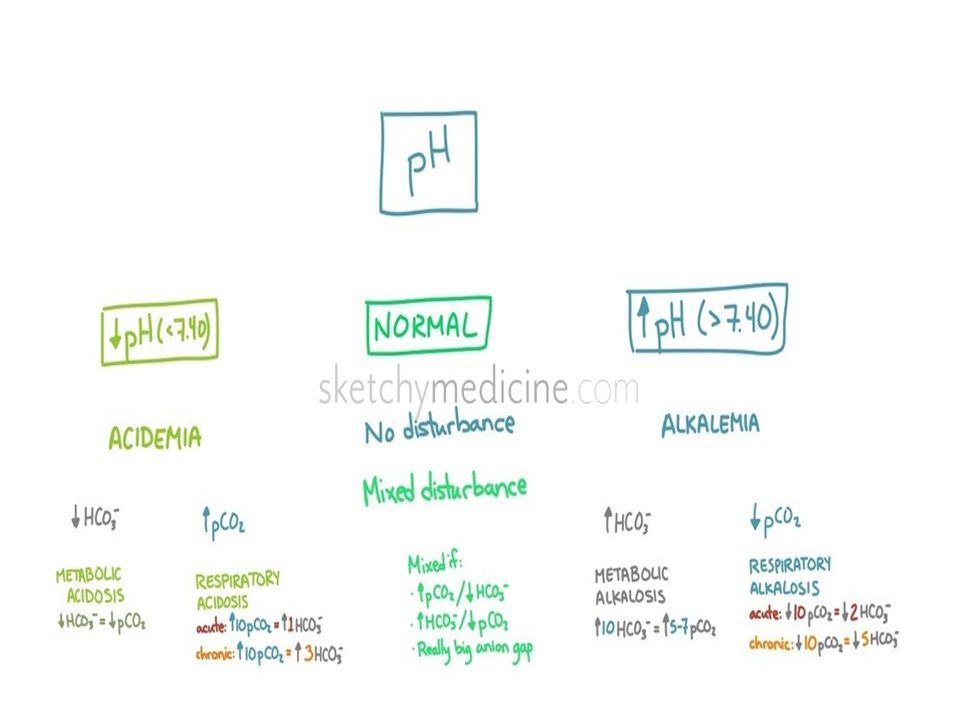 pH
↓pH (<7.40)
NORMAL
↑pH (>7.40)
sketchymedicine.com
ACIDEMIA
No disturbance
ALKALEMIA
Mixed disturbance
↓HCO₃⁻
↑pCO₂
↑HCO₃⁻
↓pCO₂
METABOLIC
ACIDOSIS
↓HCO₃⁻=↓pCO₂
RESPIRATORY
ACIDOSIS
acute:↑10pCO₂=↑1HCO₃⁻
chronic:↑10pCO₂=↑3HCO₃⁻
Mixed if:
·↑pCO₂/↓HCO₃⁻
·↑HCO₃⁻/↓pCO₂
·Really big anion gap
METABOLIC
ALKALOSIS
↑10HCO₃⁻=↑5-7pCO₂
RESPIRATORY
ALKALOSIS
acute:↓10pCO₂=↓2HCO₃⁻
chronic:↓10pCO₂=↓5HCO₃⁻